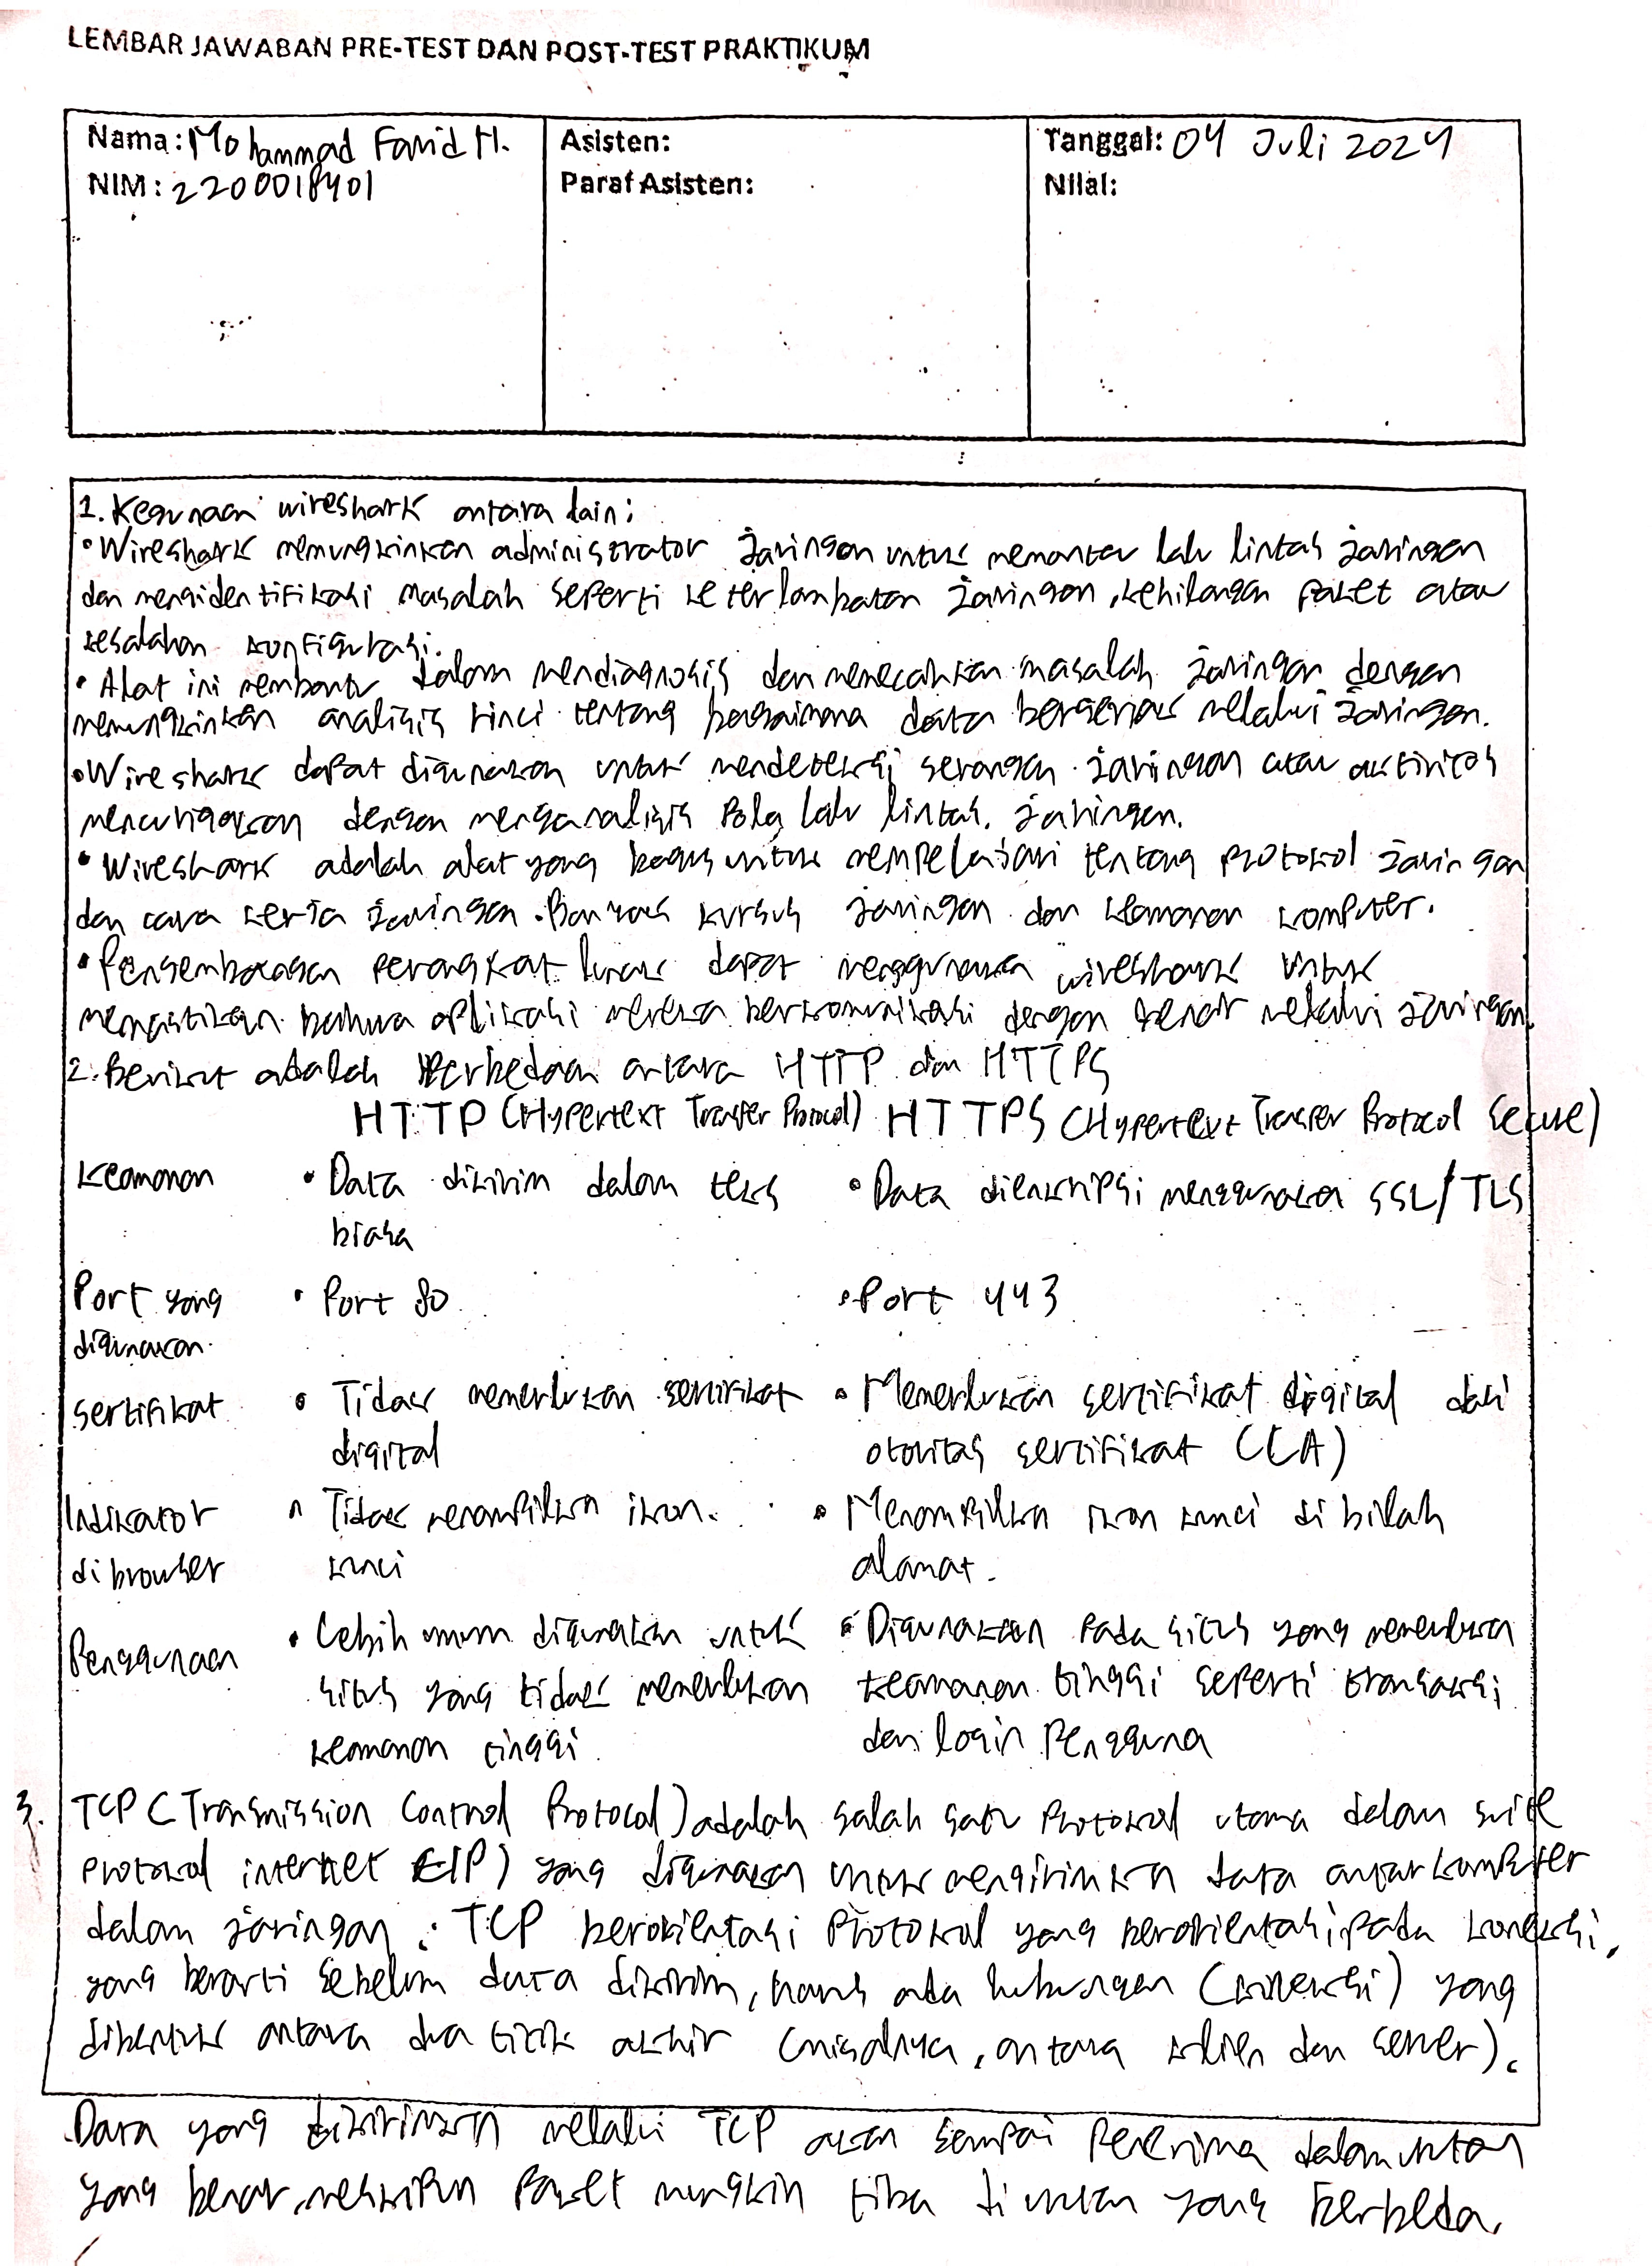 LEMBAR JAWABAN PRE-TEST DAN POST-TEST PRAKTIKUM
Nama: Mohammad Farid H.
NIM: 2200018401
Asisten:
Paraf Asisten:
Tanggal: 04 Juli 2024
Nilai:
1. Kegunaan wireshark antara lain:
• Wireshark memungkinkan administrator jaringan untuk memantau lalu lintas jaringan
dan mengidentifikasi masalah seperti keterlambatan jaringan, kehilangan paket atau
kesalahan konfigurasi.
• Alat ini membantu dalam mendiagnosis dan memecahkan masalah jaringan dengan
memungkinkan analisis rinci tentang bagaimana data bergerak melalui jaringan.
• Wireshark dapat digunakan untuk mendeteksi serangan jaringan atau aktivitas
mencurigakan dengan menganalisis Pola lalu lintas jaringan.
• Wireshark adalah alat yang bagus untuk mempelajari tentang protokol jaringan
dan cara kerja jaringan. Banyak kursus jaringan dan keamanan komputer.
• Pengembangan perangkat lunak dapat menggunakan wireshark untuk
memastikan bahwa aplikasi mereka berkomunikasi dengan benar melalui jaringan.
2. Berikut adalah Perbedaan antara HTTP dan HTTPS
HTTP (Hypertext Transfer Protocol) HTTPS (Hypertext Transfer Protocol Secure)
Keamanan • Data dikirim dalam teks • Data dienkripsi menggunakan SSL/TLS
biasa
Port yang • Port 80 • Port 443
digunakan
Sertifikat • Tidak memerlukan sertifikat • Memerlukan sertifikat digital dari
digital otoritas sertifikat (CA)
Indikator • Tidak menampilkan ikon • Menampilkan ikon kunci di bilah
di browser kunci alamat.
Penggunaan • Lebih umum digunakan untuk • Digunakan Pada situs yang memerlukan
situs yang tidak memerlukan keamanan tinggi seperti transaksi
keamanan tinggi dan login Pengguna
3. TCP (Transmission Control Protocol) adalah salah satu Protokol utama dalam suite
Protokol internet (IP) yang digunakan untuk mengirimkan data antar komputer
dalam jaringan. TCP berorientasi Protokol yang berorientasi pada koneksi,
yang berarti sebelum data dikirim, harus ada hubungan (koneksi) yang
dibentuk antara dua titik akhir (misalnya, antara klien dan server).
Data yang dikirimkan melalui TCP akan sampai Penerima dalam urutan
yang benar, meskipun Paket mungkin tiba di urutan yang berbeda.